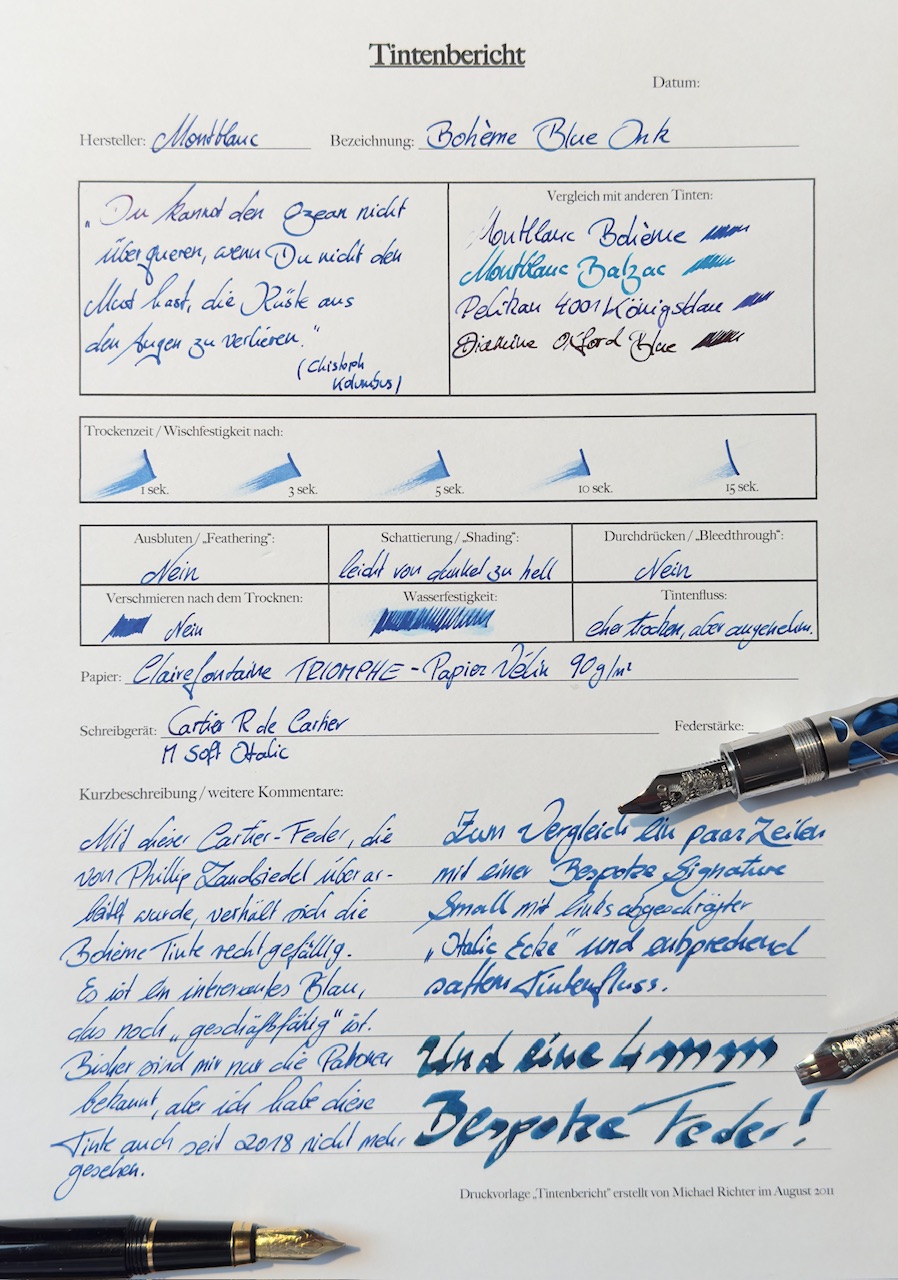 Tintenbericht
Datum:
Hersteller: Montblanc Bezeichnung: Bohème Blue Ink
„Du kannst den Ozean nicht
überqueren, wenn Du nicht den
Mut hast, die Küste aus
den Augen zu verlieren."
(Christoph
Kolumbus)
Vergleich mit anderen Tinten:
Montblanc Bohème
Montblanc Balzac
Pelikan 4001 Königsblau
Diamine Oxford Blue
Trockenzeit / Wischfestigkeit nach:
1 sek. 3 sek. 5 sek. 10 sek. 15 sek.
Ausbluten / „Feathering": Schattierung / „Shading": Durchdrücken / „Bleedthrough":
Nein leicht von dunkel zu hell Nein
Verschmieren nach dem Trocknen: Wasserfestigkeit: Tintenfluss:
Nein eher trocken, aber angenehm.
Papier: Clairefontaine TRIOMPHE - Papier Vélin 90g/m²
Schreibgerät: Cartier R de Cartier Federstärke:
M Soft Italic
Kurzbeschreibung / weitere Kommentare:
Mit dieser Cartier-Feder, die
von Phillip überar-
beitet wurde, verhält sich die
Bohème Tinte recht gefällig.
Es ist ein interessantes Blau,
das noch „geschäftsfähig" ist.
Bisher sind mir nur die Patronen
bekannt, aber ich habe diese
Tinte auch seit 2018 nicht mehr
gesehen.
Zum Vergleich ein paar Zeilen
mit einer Bespoke Signature
Small mit links abgeschrägter
„Italic Ecke" und entsprechend
satten Tintenfluss.
Und eine 4 mm
Bespoke Feder!
Druckvorlage „Tintenbericht" erstellt von Michael Richter im August 2011